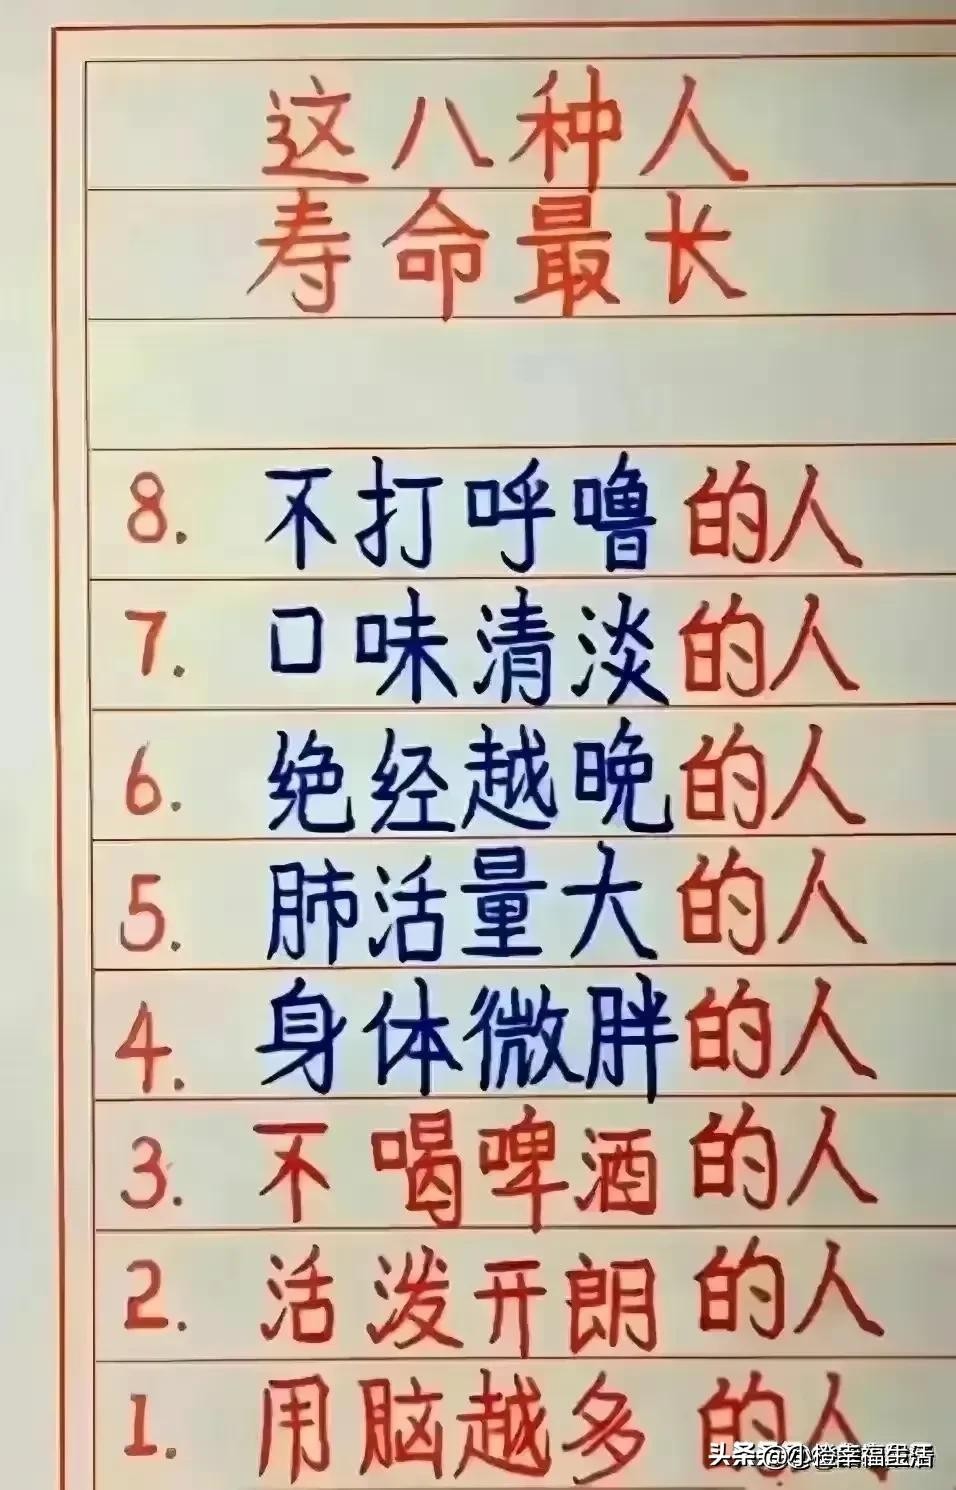 这八种人
寿命最长
8. 不打呼噜的人
7. 口味清淡的人
6. 绝经越晚的人
5. 肺活量大的人
4. 身体微胖的人
3. 不喝啤酒的人
2. 活泼开朗的人
1. 用脑越多的人
头条 @小橙幸福生活